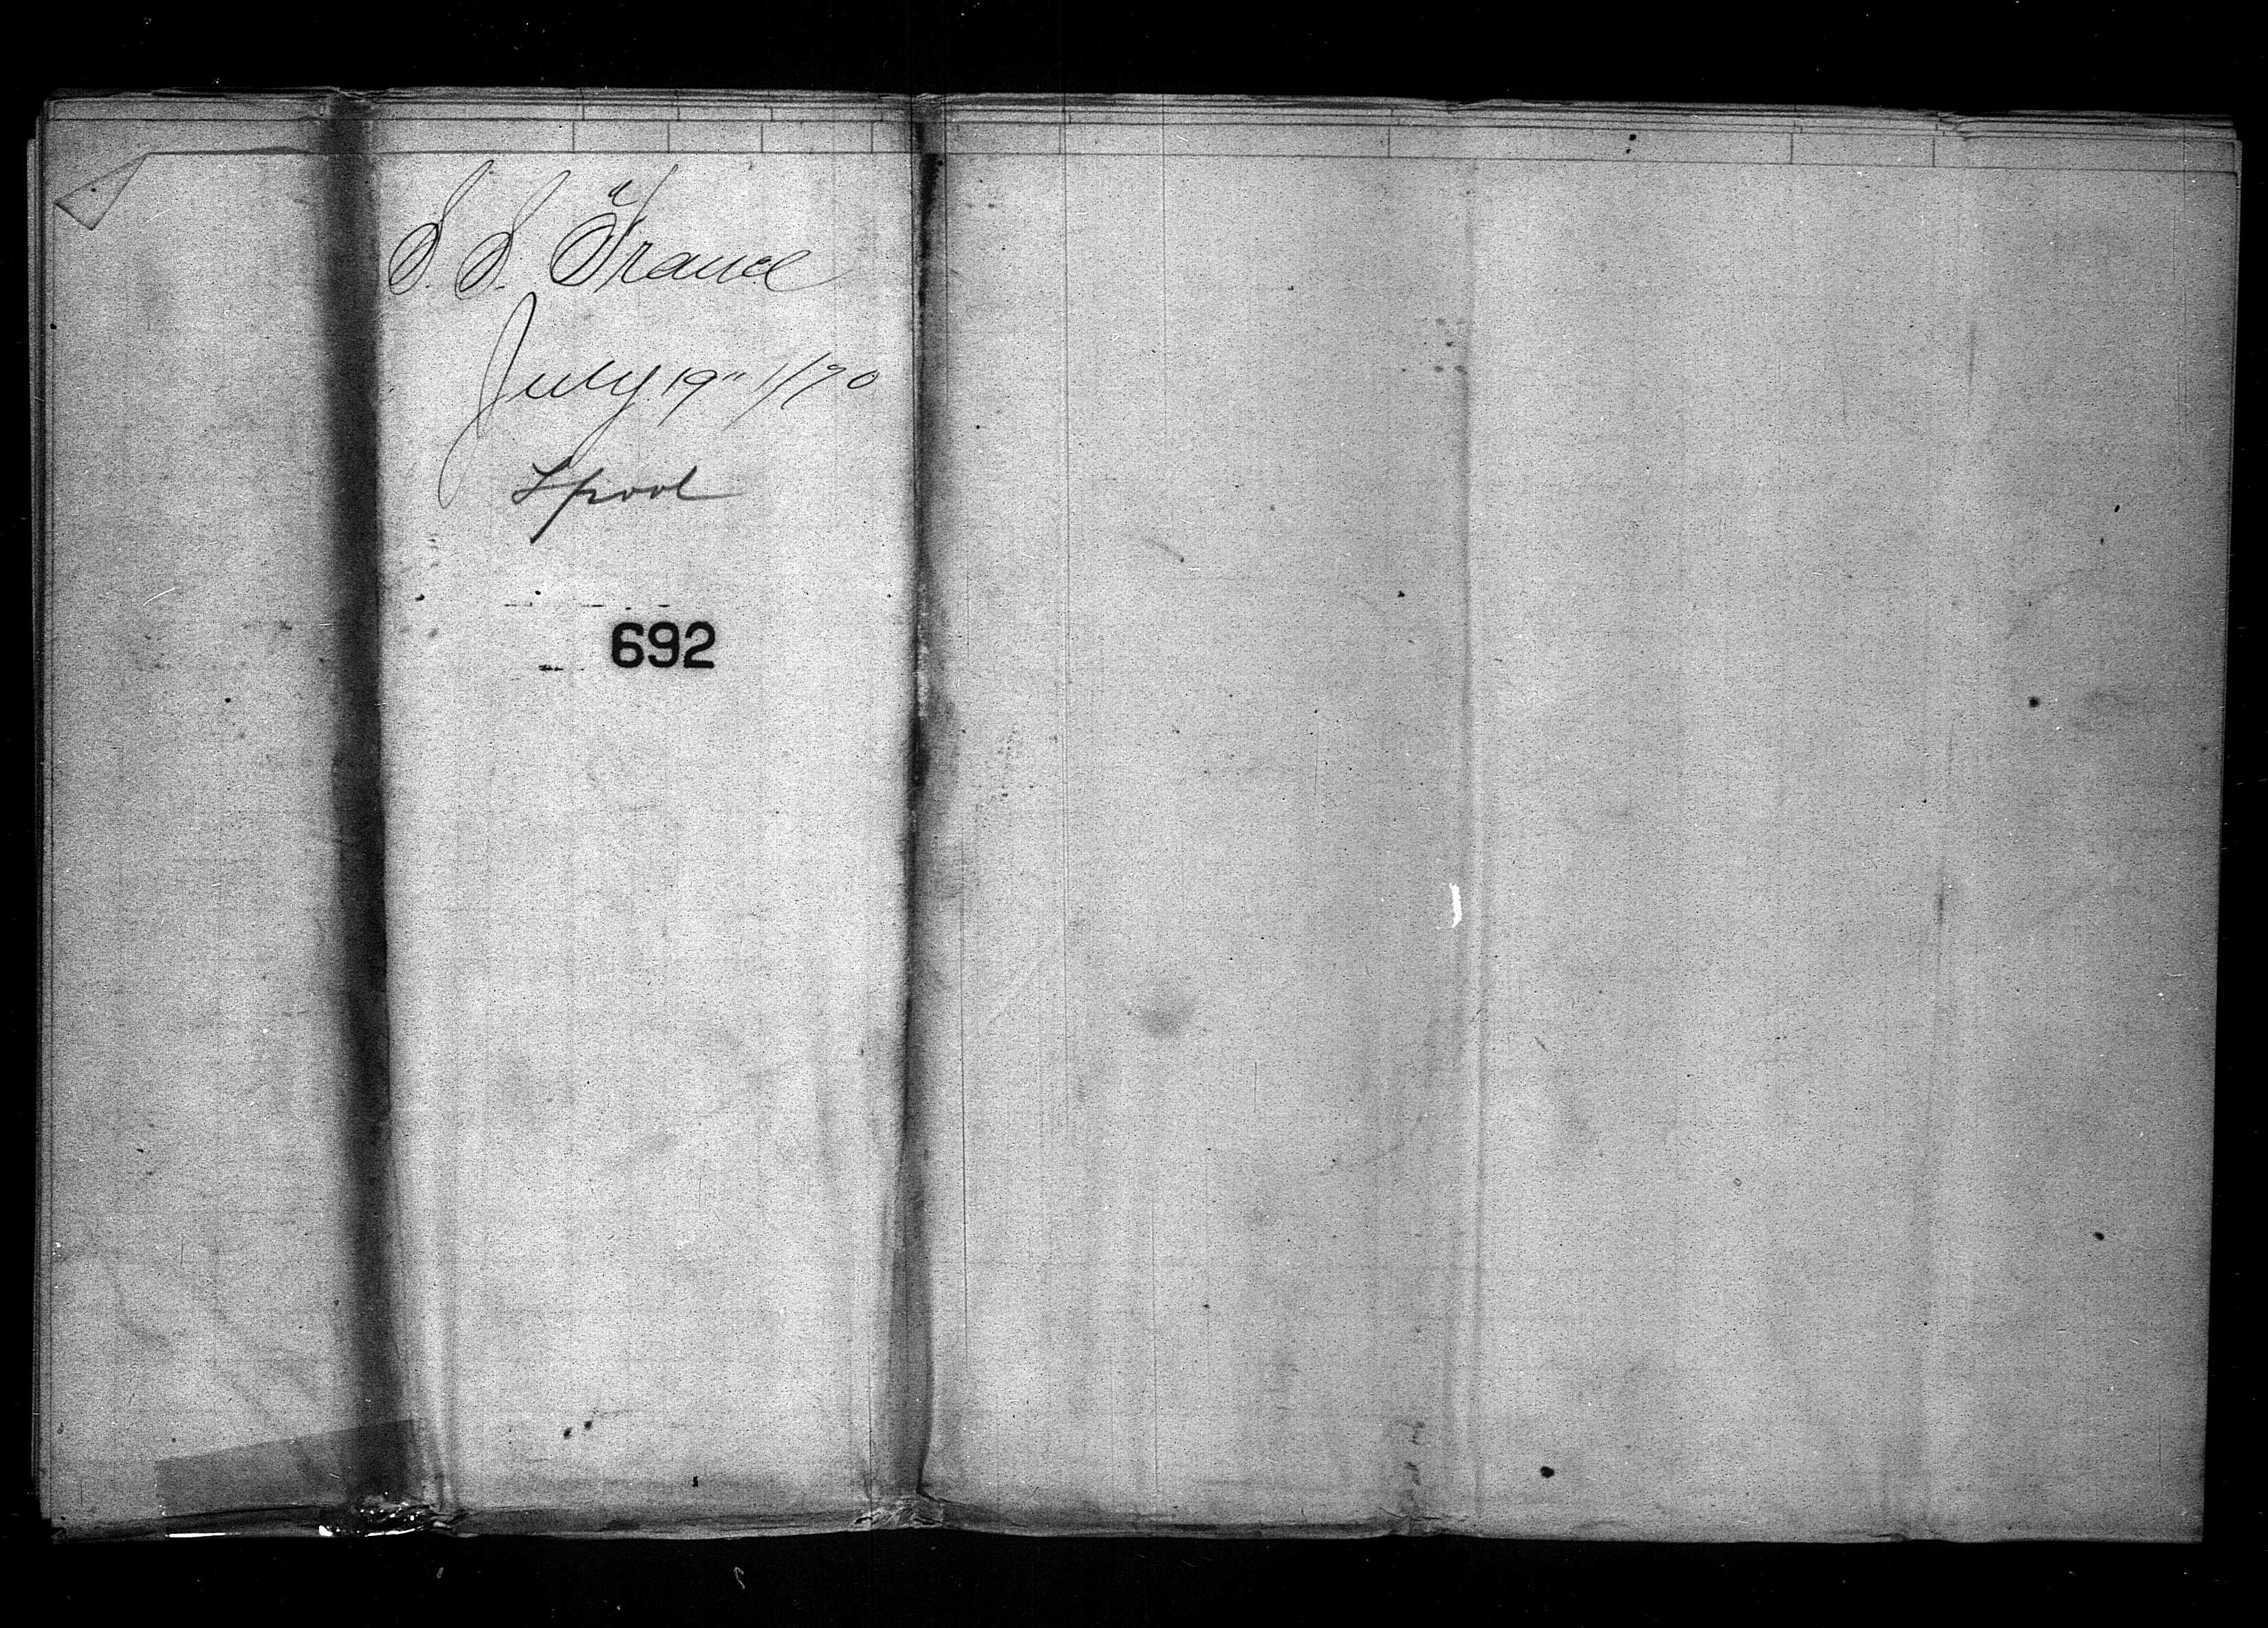 S. S. "France
July 19" 1/70
Lpool
692